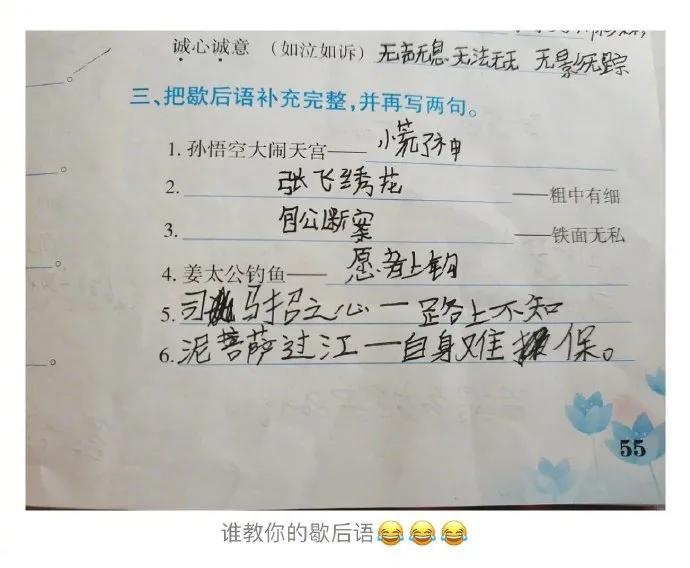 诚心诚意 （如泣如诉） 无声无息 无法无天 无影无踪
三、把歇后语补充完整，并再写两句。
1. 孙悟空大闹天宫——慌了神
2. 张飞绣花——粗中有细
3. 包公断案——铁面无私
4. 姜太公钓鱼——愿者上钩
5. 司马招之心—路上不知
6. 泥菩萨过江—自身难保。
55
谁教你的歇后语😂😂😂